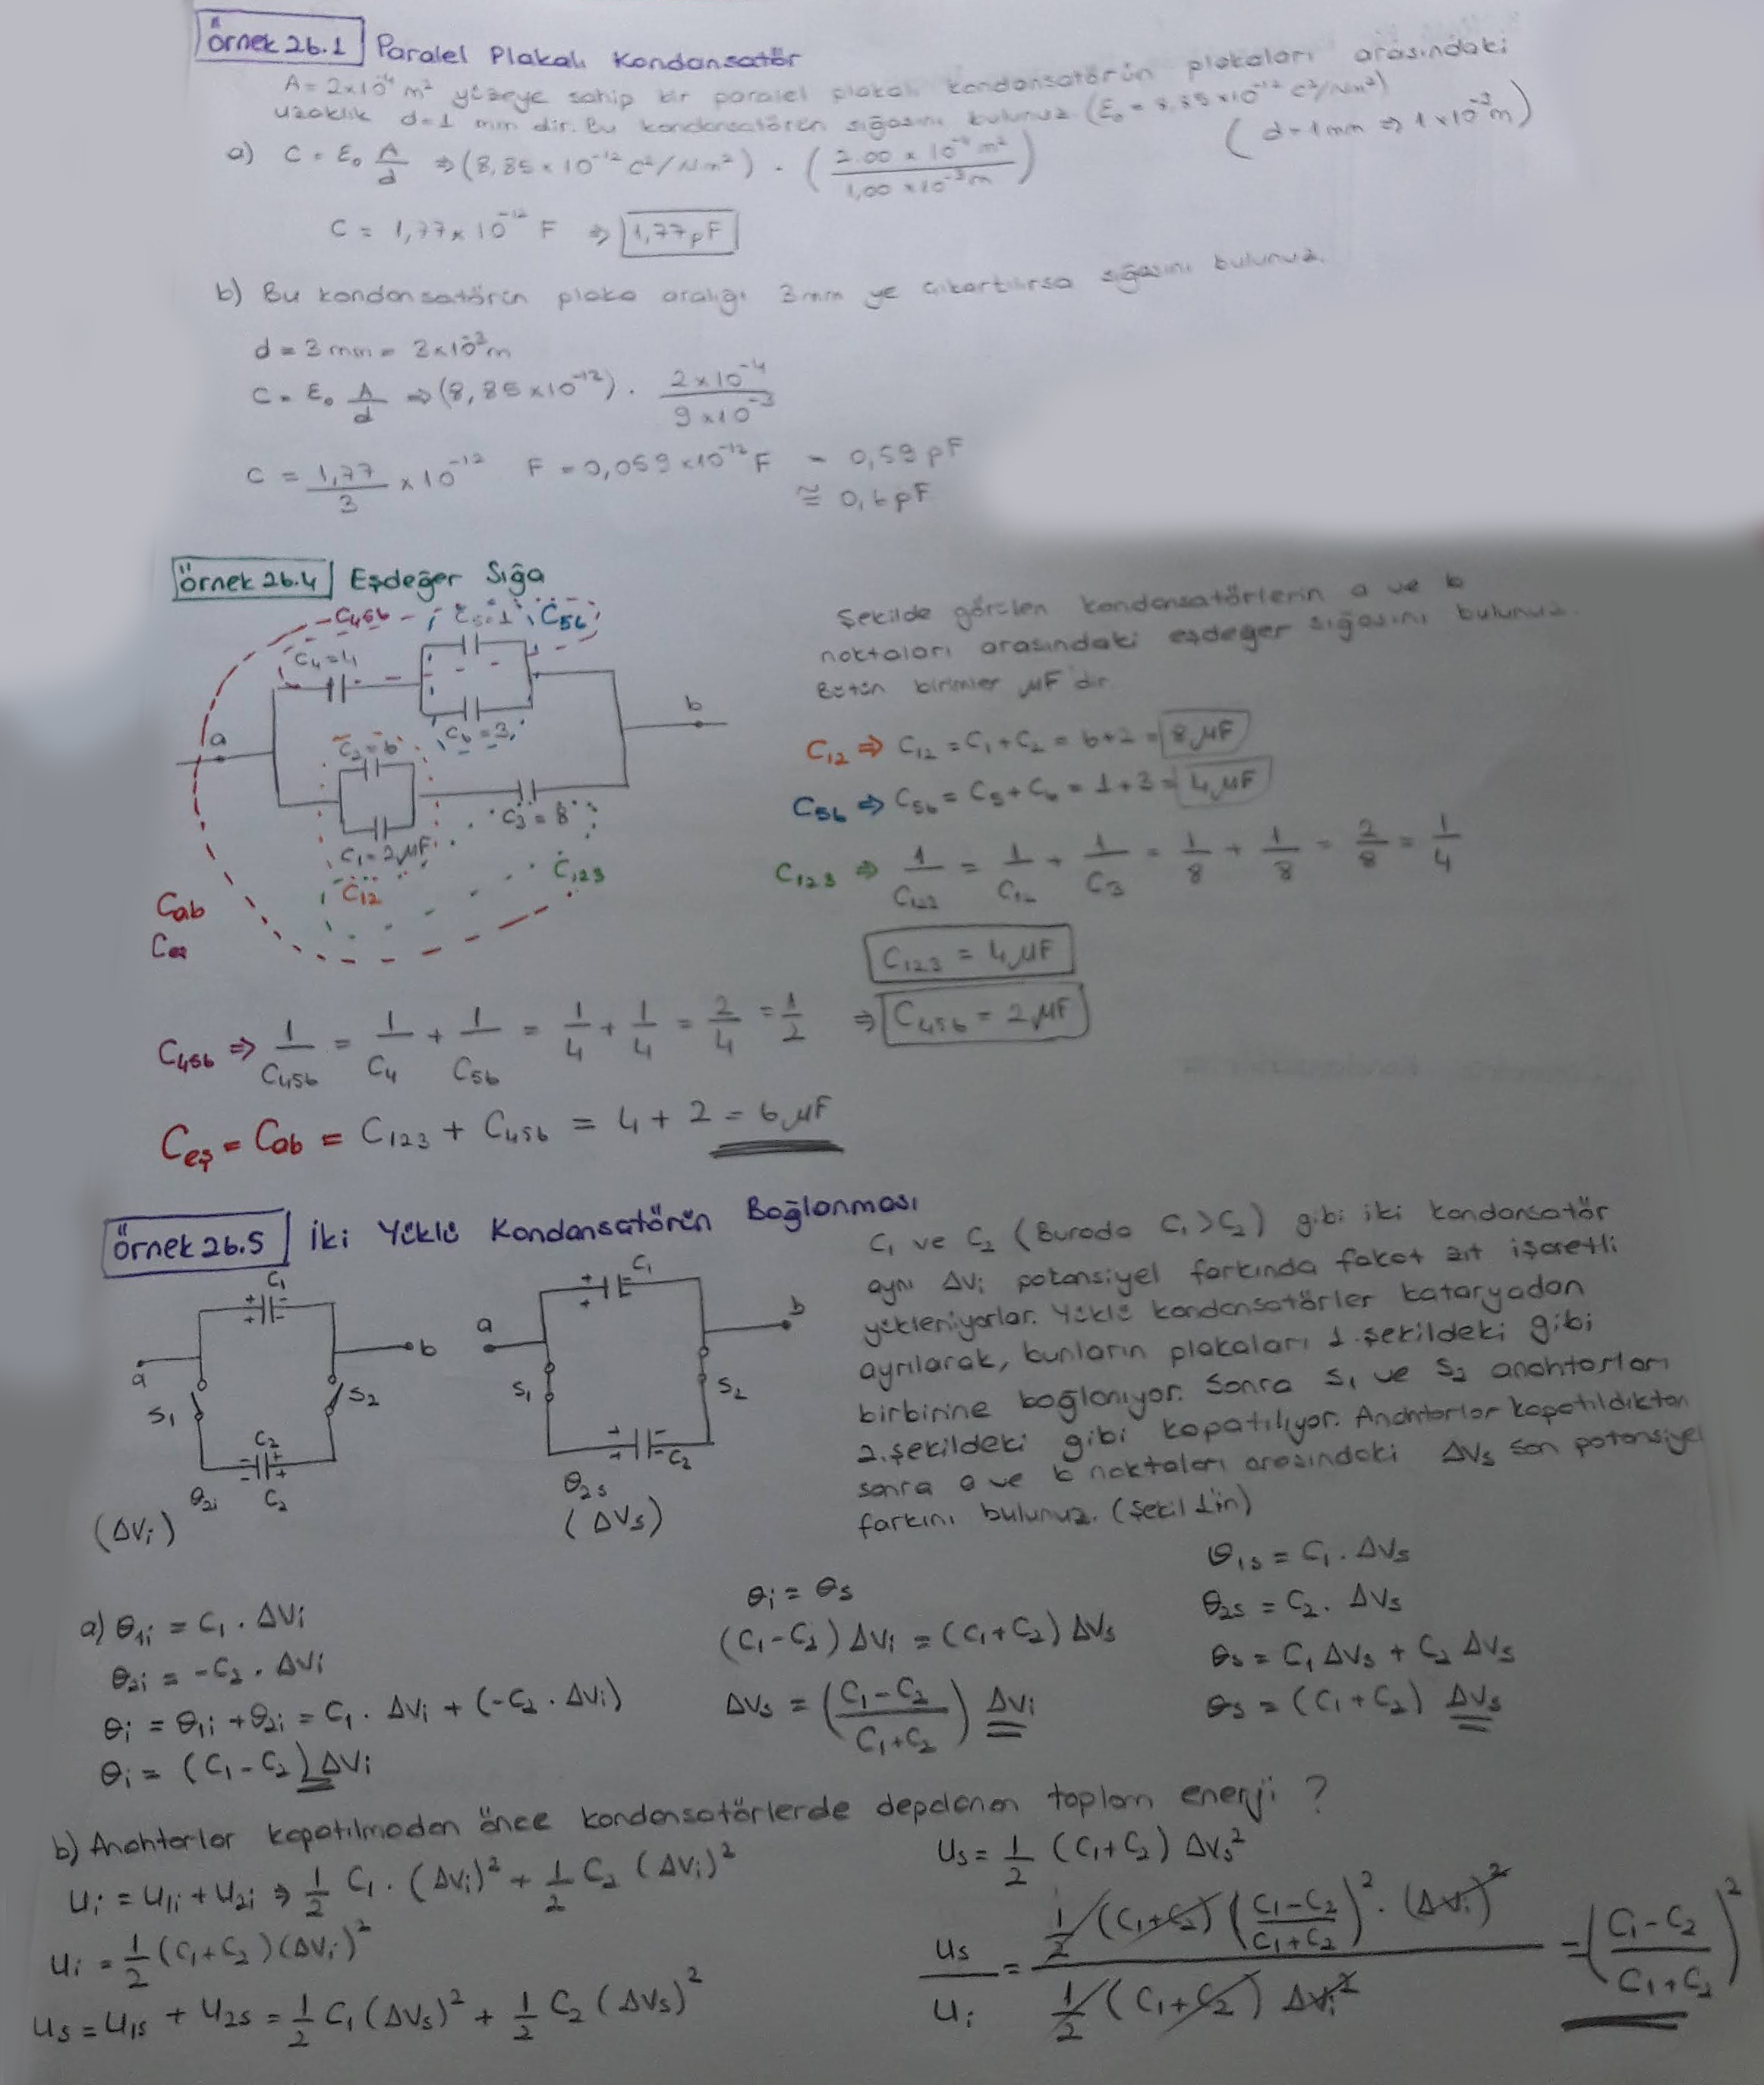 Örnek 26.1 Paralel Plakalı Kondansatör
A = 2x10⁻⁴ m² yüzeye sahip bir paralel plakalı kondansatörün plakaları arasındaki
uzaklık d=1 mm dir. Bu kondansatörün sığasını bulunuz. (ε₀ = 8,85 x10⁻¹² C²/Nm²)
(d=1mm ⇒ 1x10⁻³m)
a) C = ε₀ A/d ⇒ (8,85 x 10⁻¹² C²/Nm²) . (2.00 x 10⁻⁴ m² / 1,00 x10⁻³m)
C = 1,77x10⁻¹² F ⇒ 1,77pF
b) Bu kondansatörün plaka aralığı 3mm ye çıkartılırsa sığasını bulunuz.
d = 3mm = 3x10⁻³m
C = ε₀ A/d ⇒ (8,85 x10⁻¹²) . 2x10⁻⁴ / 9x10⁻³
C = 1,77/3 x10⁻¹² F = 0,059x10⁻¹² F = 0,59 pF
≅ 0,6pF
Örnek 26.4 Eşdeğer Sığa
Şekilde görülen kondansatörlerin a ve b
noktaları arasındaki eşdeğer sığasını bulunuz.
Bütün birimler μF dir.
C₄₅₆ C₅=1 C₅₆
C₄=4
a b
C₆=3
C₂=6
C₃=8
C₁=2μF
C₁₂ C₁₂₃
Cab
Ceş
C₁₂ ⇒ C₁₂ = C₁+C₂ = 6+2 = 8μF
C₅₆ ⇒ C₅₆ = C₅+C₆ = 1+3 = 4μF
C₁₂₃ ⇒ 1/C₁₂₃ = 1/C₁₂ + 1/C₃ = 1/8 + 1/8 = 2/8 = 1/4
C₁₂₃ = 4μF
C₄₅₆ ⇒ 1/C₄₅₆ = 1/C₄ + 1/C₅₆ = 1/4 + 1/4 = 2/4 = 1/2 ⇒ C₄₅₆ = 2μF
Ceş = Cab = C₁₂₃ + C₄₅₆ = 4 + 2 = 6μF
Örnek 26.5 İki Yüklü Kondansatörün Bağlanması
C₁ ve C₂ (Burada C₁>C₂) gibi iki kondansatör
aynı ΔVi potansiyel farkında fakat zıt işaretli
yükleniyorlar. Yüklü kondansatörler bataryadan
ayrılarak, bunların plakaları 1.şekildeki gibi
birbirine bağlanıyor. Sonra S₁ ve S₂ anahtarları
2.şekildeki gibi kapatılıyor. Anahtarlar kapatıldıktan
sonra a ve b noktaları arasındaki ΔVs son potansiyel
farkını bulunuz. (Şekil 1'in)
C₁
a b
S₁ S₂
C₂
θ₂i C₂
(ΔVi)
C₁
a b
S₁ S₂
C₂
θ₂s
(ΔVs)
a) θ₁i = C₁ . ΔVi
θ₂i = -C₂ . ΔVi
θi = θ₁i + θ₂i = C₁ . ΔVi + (-C₂ . ΔVi)
θi = (C₁-C₂) ΔVi
θi = θs
(C₁-C₂) ΔVi = (C₁+C₂) ΔVs
ΔVs = (C₁-C₂ / C₁+C₂) ΔVi
θ₁s = C₁ . ΔVs
θ₂s = C₂ . ΔVs
θs = C₁ ΔVs + C₂ ΔVs
θs = (C₁+C₂) ΔVs
b) Anahtarlar kapatılmadan önce kondansatörlerde depolanan toplam enerji ?
Ui = U₁i + U₂i ⇒ 1/2 C₁ . (ΔVi)² + 1/2 C₂ (ΔVi)²
Ui = 1/2 (C₁+C₂)(ΔVi)²
Us = U₁s + U₂s = 1/2 C₁ (ΔVs)² + 1/2 C₂ (ΔVs)²
Us = 1/2 (C₁+C₂) ΔVs²
Us/Ui = 1/2 (C₁+C₂) (C₁-C₂ / C₁+C₂)² . (ΔVi)² / 1/2 (C₁+C₂) ΔVi² = (C₁-C₂ / C₁+C₂)²